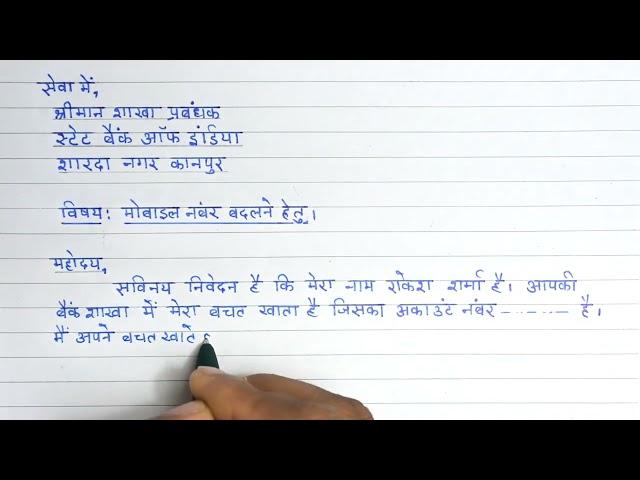 सेवा में,
श्रीमान शाखा प्रबंधक
स्टेट बैंक ऑफ इंडिया
शारदा नगर कानपुर
विषय: मोबाइल नंबर बदलने हेतु।
महोदय,
सविनय निवेदन है कि मेरा नाम राकेश शर्मा है। आपकी
बैंक शाखा में मेरा बचत खाता है जिसका अकाउंट नंबर -------- है।
मैं अपने बचत खाते